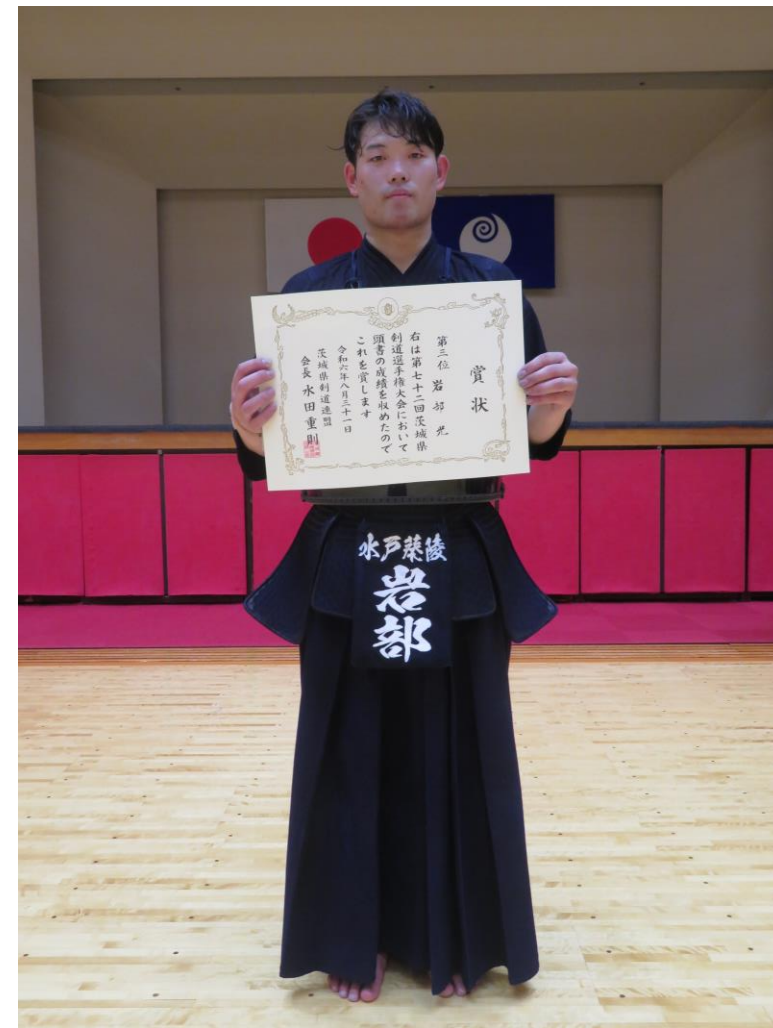 賞状
第三位 岩部光
右は第七十二回茨城県
剣道選手権大会において
頭書の成績を収めたので
これを賞します
令和六年八月三十一日
茨城県剣道連盟
会長 水田重則
水戸葵陵
岩部